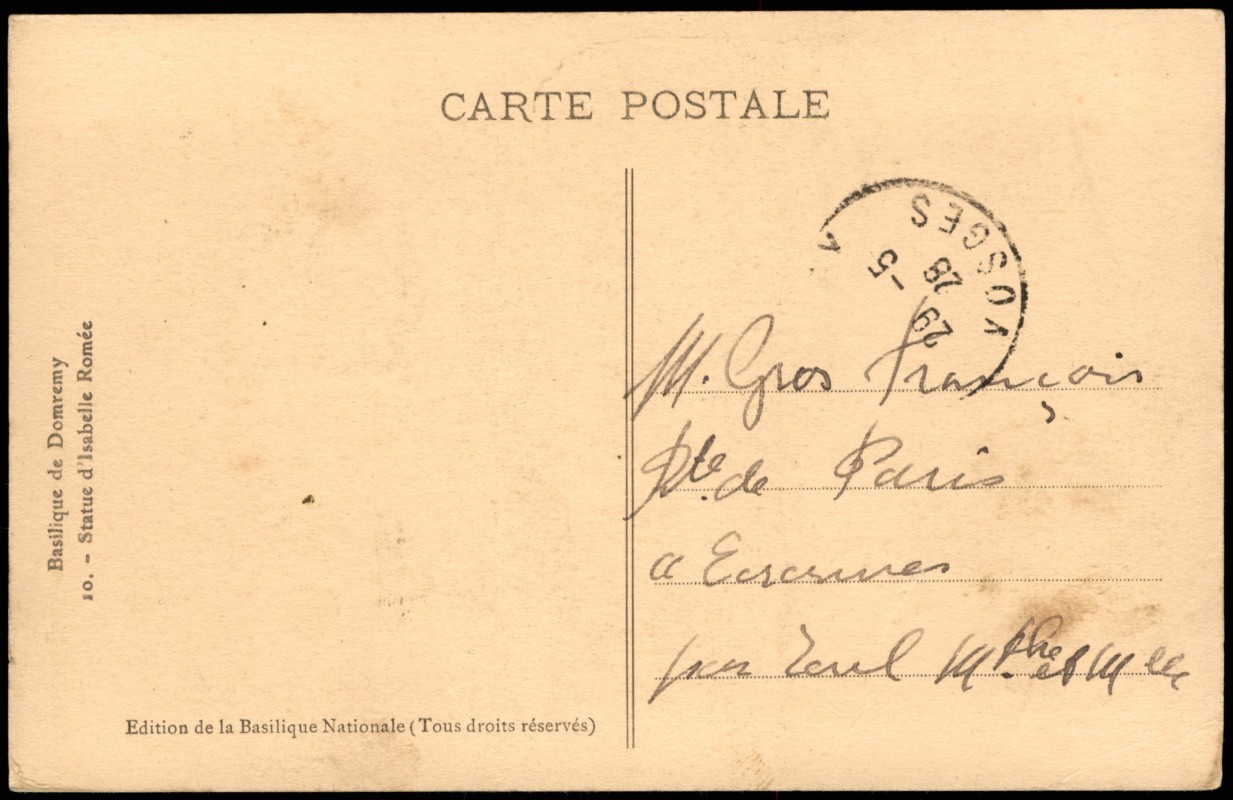 CARTE POSTALE
VOSGES
29 -5
28
M. Gros François
Rte de Paris
a Ecrouves
par Toul Mthe et Mlle
Basilique de Domremy
10. - Statue d'Isabelle Romée
Edition de la Basilique Nationale (Tous droits réservés)